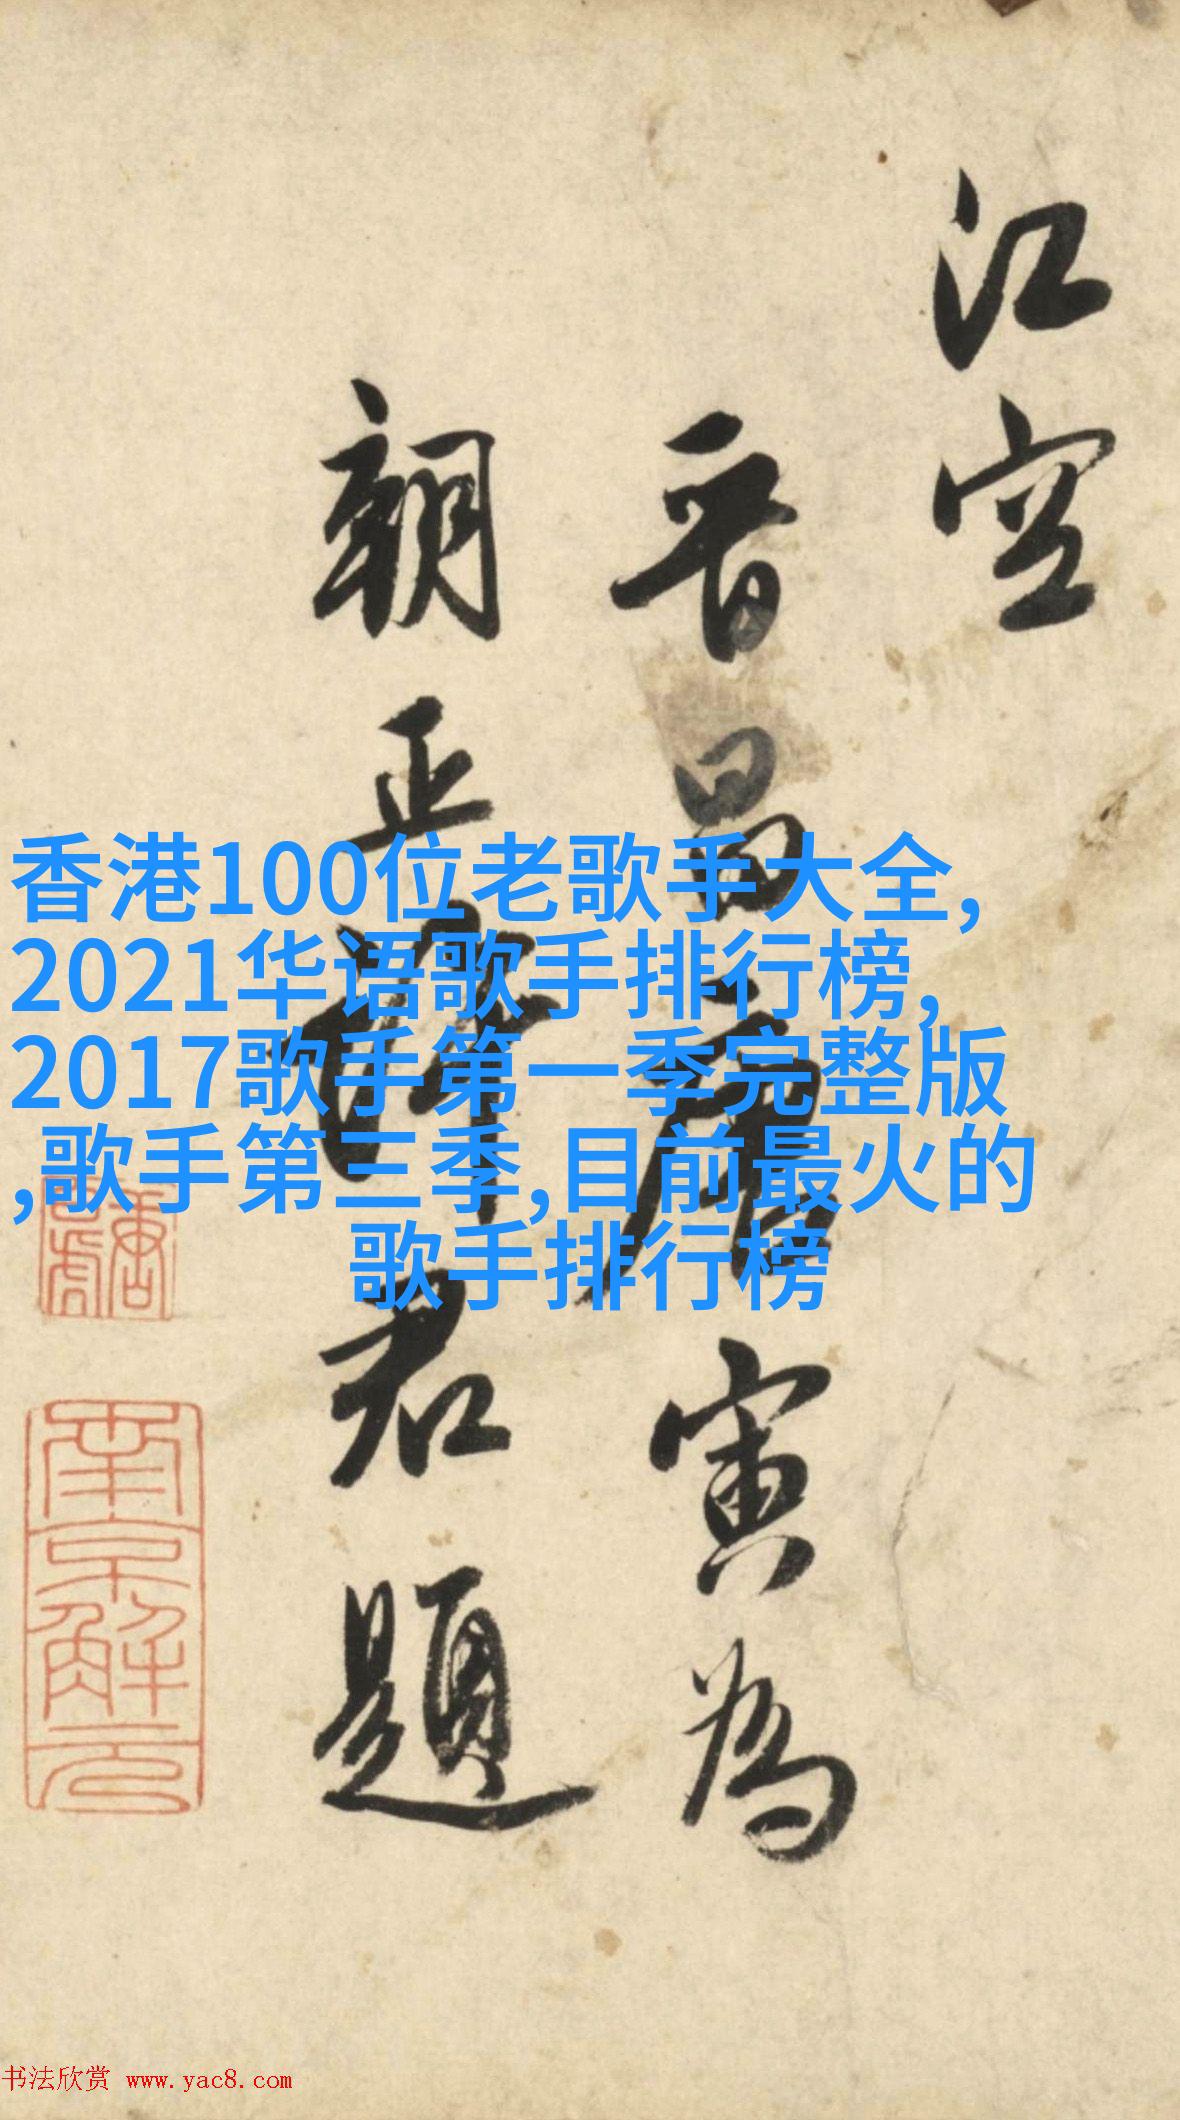 江空
晋昌唐寅为
朝正薛君题
香港100位老歌手大全,
2021华语歌手排行榜,
2017歌手第一季完整版
,歌手第三季,目前最火的
歌手排行榜
南京解元
书法欣赏 www.yac8.com